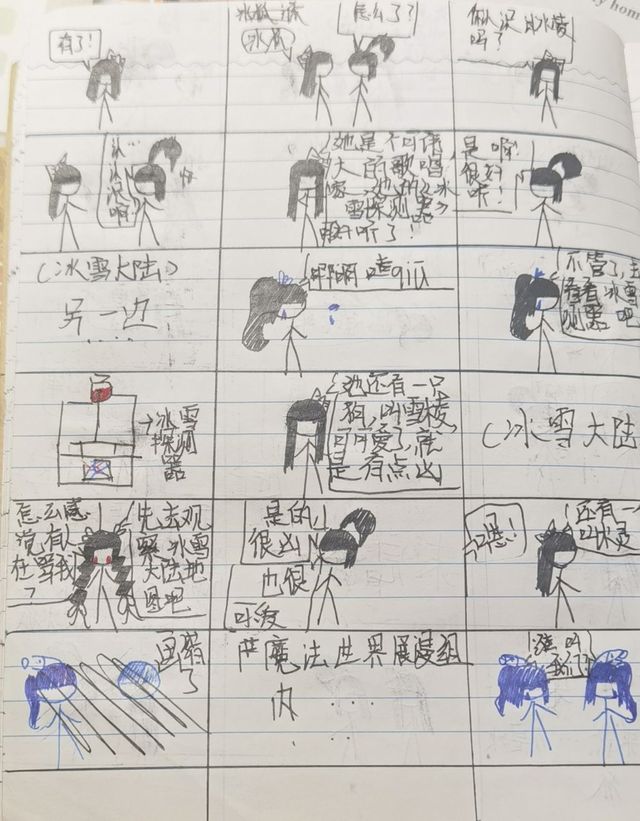 有了!
冰狐
怎么了?
你认识冰凌
吗?
冰…
冰凌
啊?
她是不可估
大的歌唱
家,她的《冰
雪探测器》
听了!
是啊!
很好
听!
(冰雪大陆)
另一边
……
不管了,去
看看冰雪
测器吧
冰雪
探测
器
她还有一只
狗,叫雪棱
可可爱了,就
是有点凶
(冰雪大陆
怎么感
觉有人
在骂我
?
先去观
察冰雪
大陆地
图吧
是的,
很凶
也很
可爱
嗯!
还有一
叫冰灵
画错
了
魔法世界展漫组
内
……
谁叫
我们?